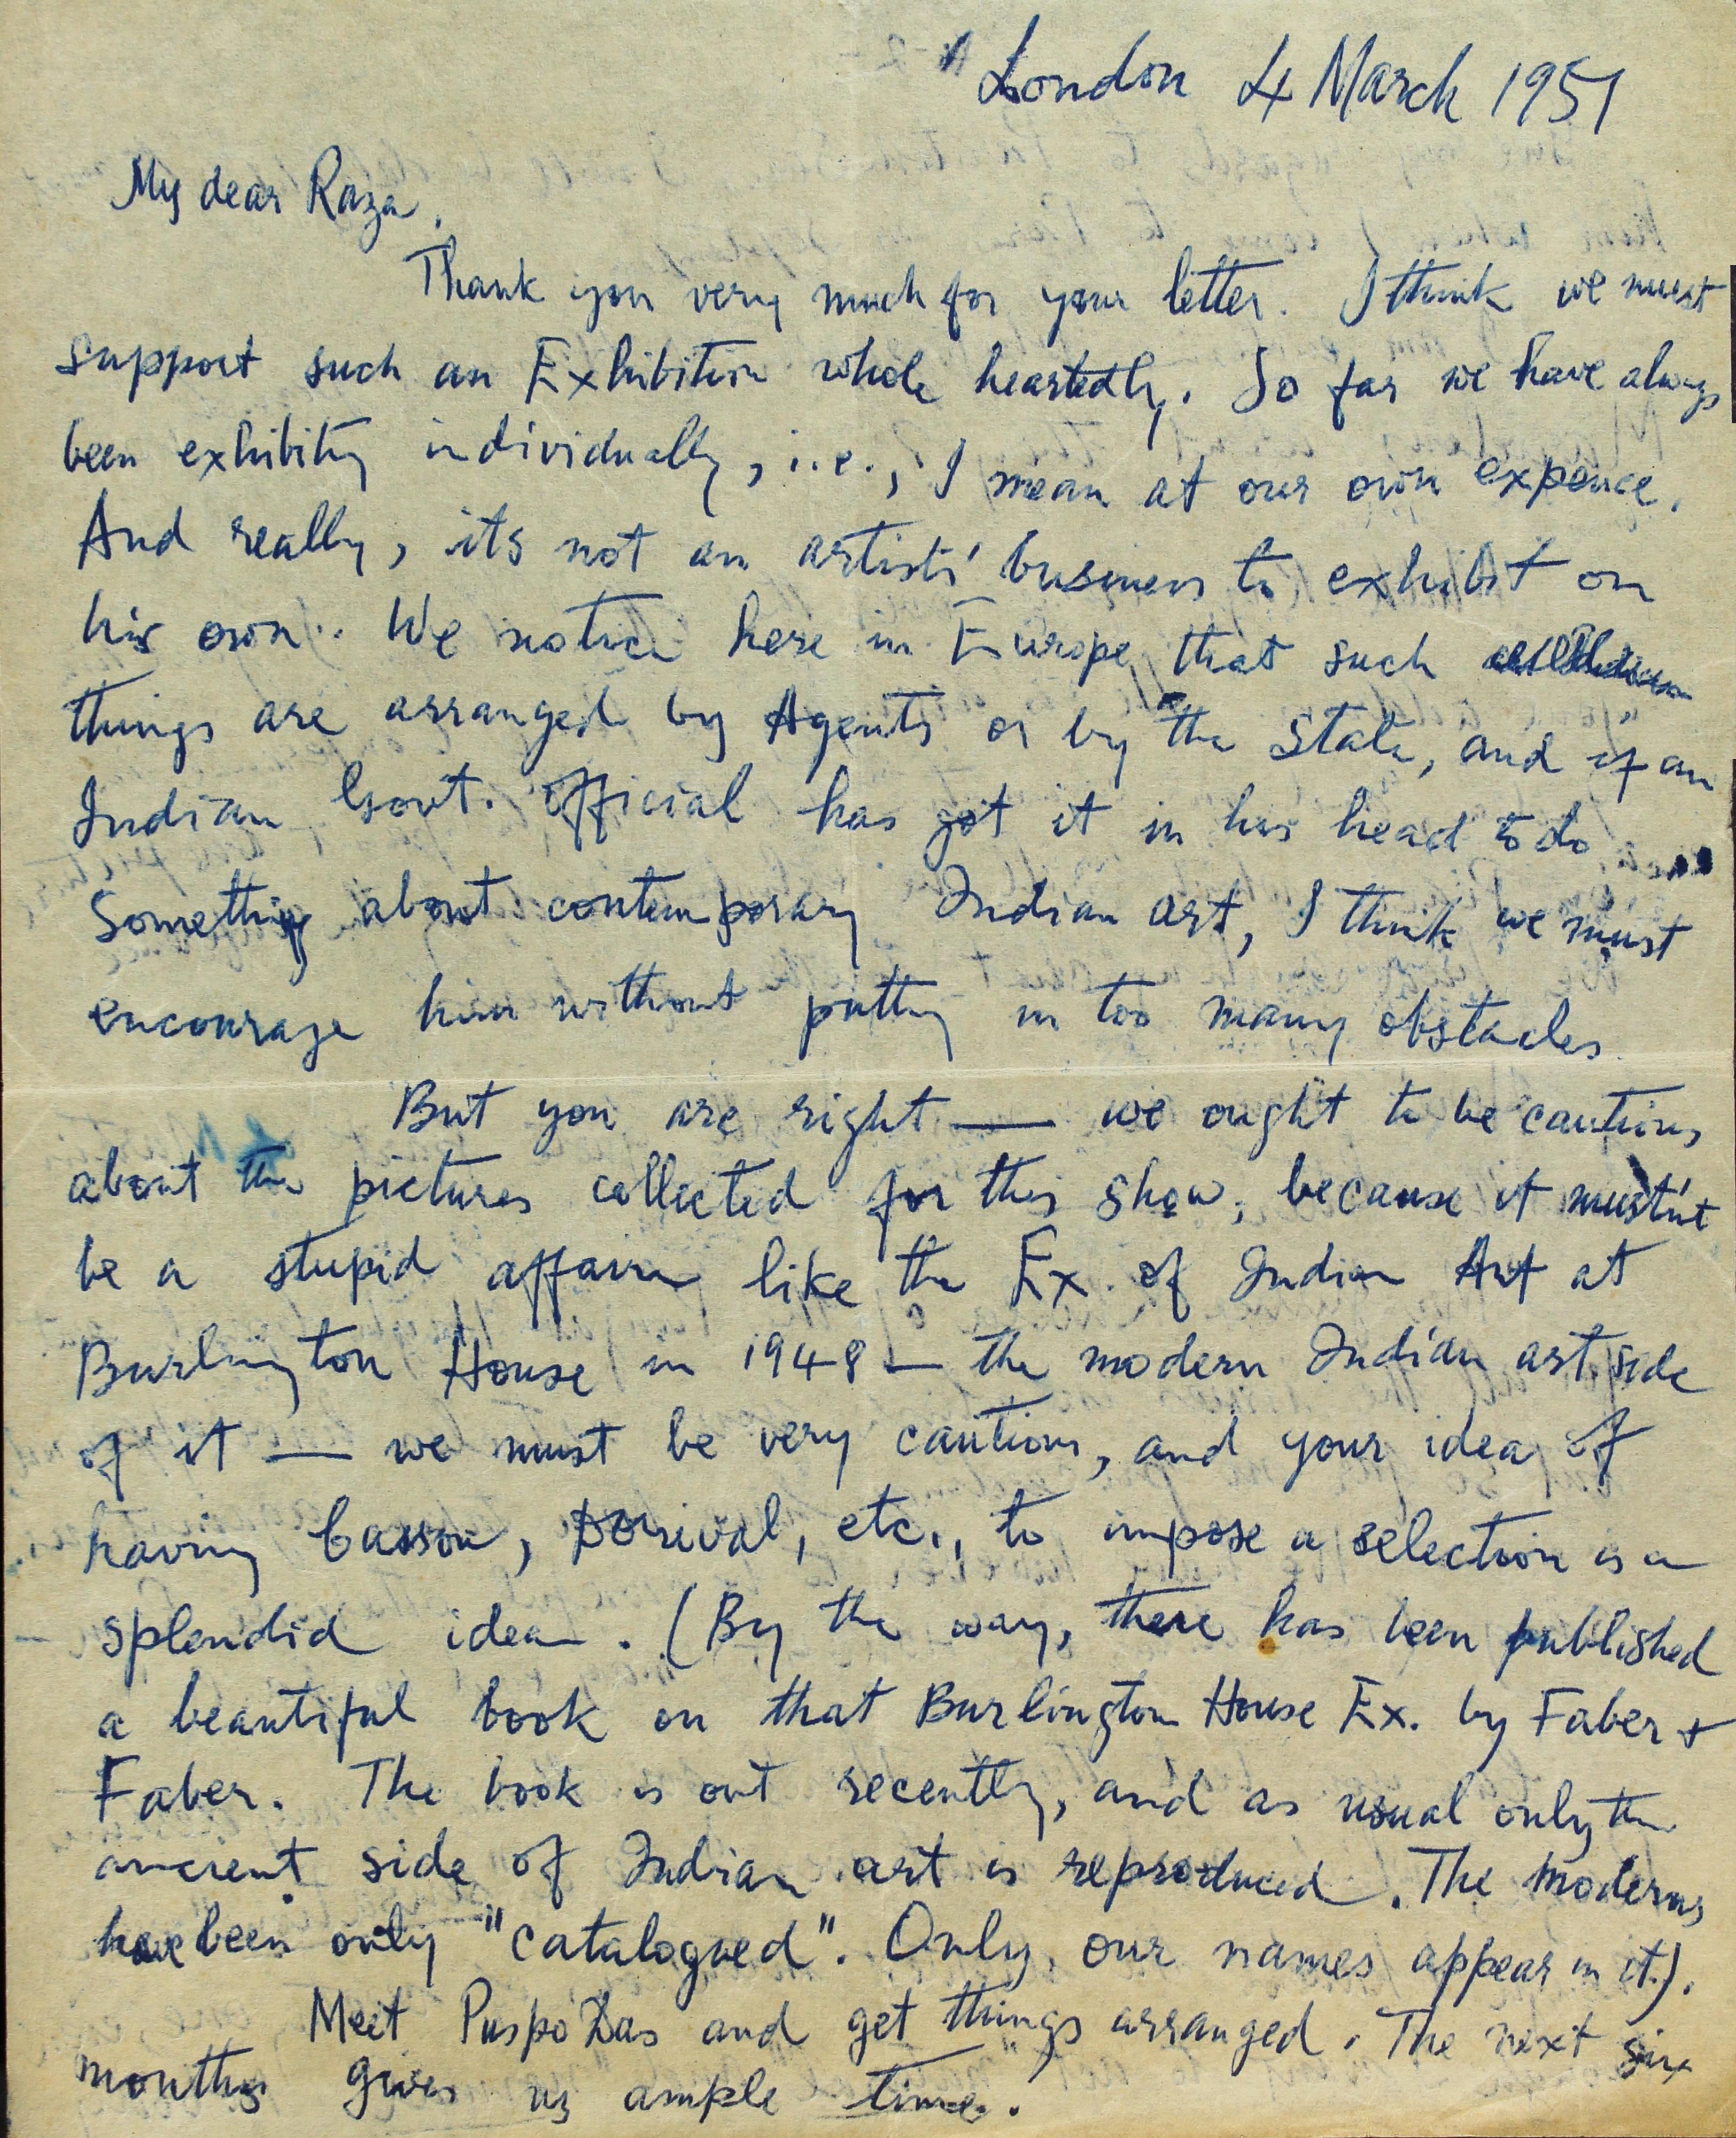 London 4 March 1951
My dear Raza,
Thank you very much for your letter. I think we must
support such an Exhibition whole heartedly. So far we have always
been exhibiting individually, i.e., I mean at our own expence.
And really, its not an artists' business to exhibit on
his own. We notice here in Europe that such
things are arranged by Agents or by the State, and if an
Indian Govt. official has got it in his head to do
Something about contemporary Indian art, I think we must
encourage him without putting in too many obstacles
But you are right — we ought to be cautious
about the pictures collected for this show, because it must'nt
be a stupid affair like the Ex. of Indian Art at
Burlington House in 1948 — the modern Indian art side
of it — we must be very cautious, and your idea of
having Cassou, Dorival, etc., to impose a selection is a
splendid idea. (By the way, there has been published
a beautiful book on that Burlington House Ex. by Faber &
Faber. The book is out recently, and as usual only the
ancient side of Indian art is reproduced. The moderns
have been only "catalogued". Only our names appear in it).
Meet Puspo Das and get things arranged. The next six
months gives us ample time.